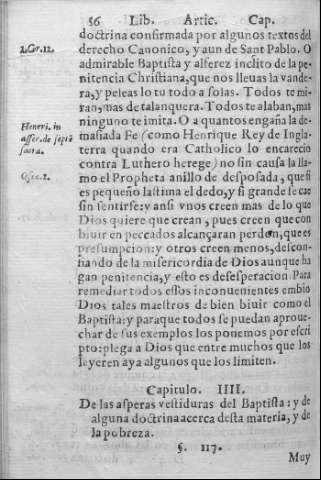 56 Lib. Artic. Cap.
doctrina confirmada por algunos textos del
2. Cor. 12. derecho Canonico, y aun de Sant Pablo. O
admirable Baptista y alferez inclito de la pe
nitencia Christiana, que nos lleuas la vande-
ra, y peleas lo tu todo a solas. Todos te mi-
ran, mas de talanquera. Todos te alaban, mas
Henri. in ninguno te imita. O a quantos engaña la de-
asser. de septẽ masiada Fe (como Henrique Rey de Ingla-
sacra. terra quando era Catholico lo encarecio
contra Luthero herege) no sin causa la lla-
Osee. 2. mo el Propheta anillo de desposada, que si
es pequeño lastima el dedo, y si grande se cae
sin sentirse: y ansi vnos creen mas de lo que
Dios quiere que crean, pues creen que con
biuir en peccados alcançaran perdon, que es
presumpcion: y otros creen menos, descon-
fiando de la misericordia de Dios aunque ha
gan penitencia, y esto es desesperacion. Para
remediar todos estos inconuenientes embio
Dios tales maestros de bien biuir como el
Baptista: y para que todos se puedan aproue-
char de sus exemplos los ponemos por escri
pto: plega a Dios que entre muchos que los
leyeren aya algunos que los limiten.
Capitulo. IIII.
De las asperas vestiduras del Baptista: y de
alguna doctrina acerca desta materia, y de
la pobreza.
§. 117.
Muy